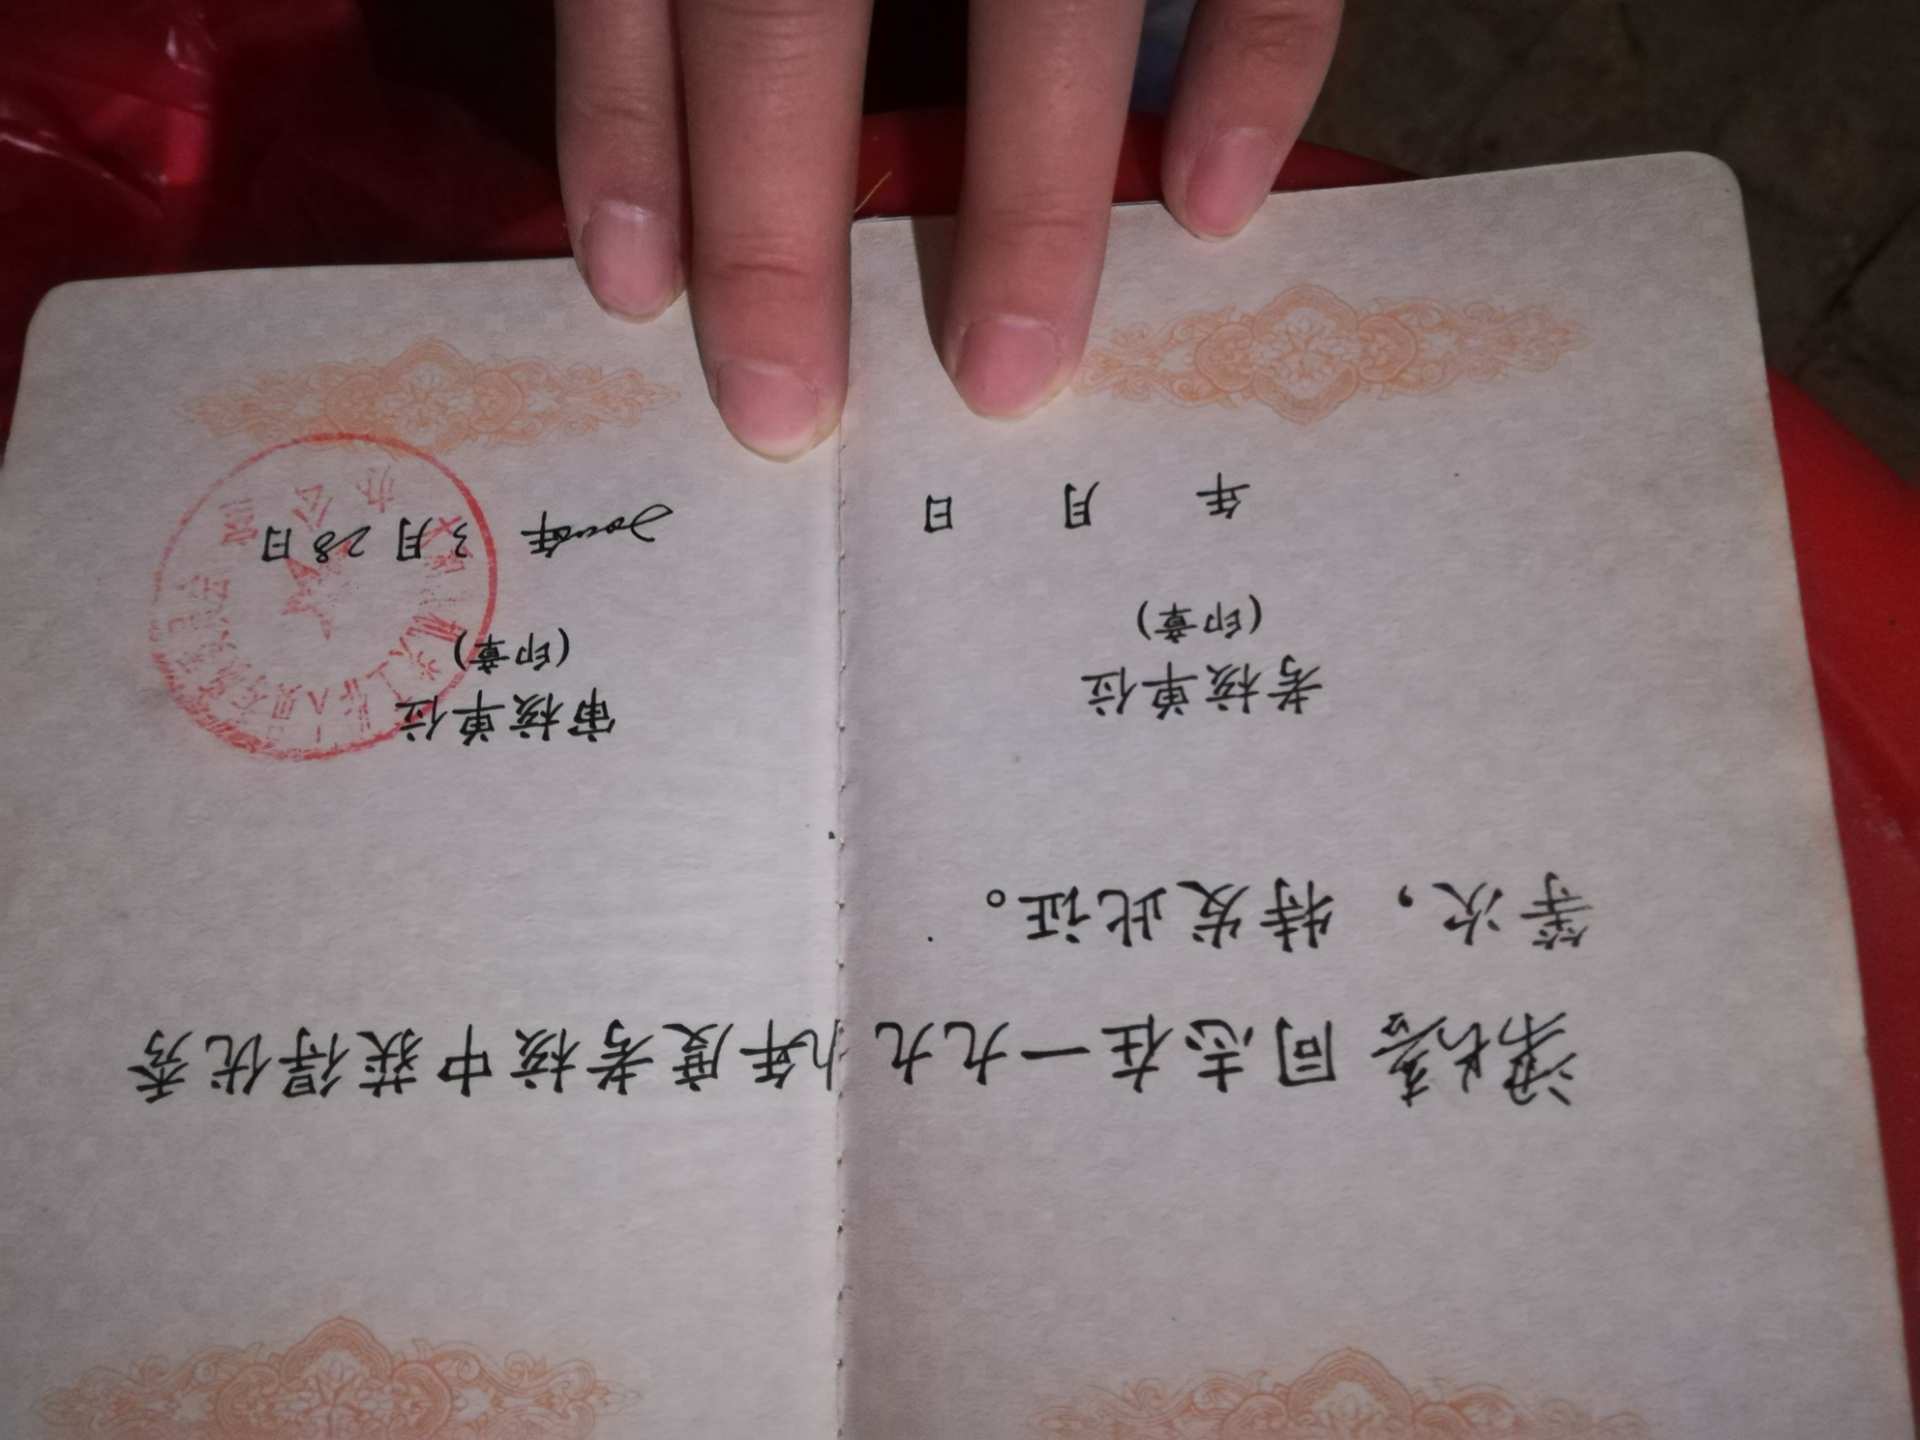 梁长 同志在一九九九年度考核中获得优秀
等次，特发此证。
考核单位
(印章)
年 月 日
审核单位
(印章)
2000年 3月28日
办公室